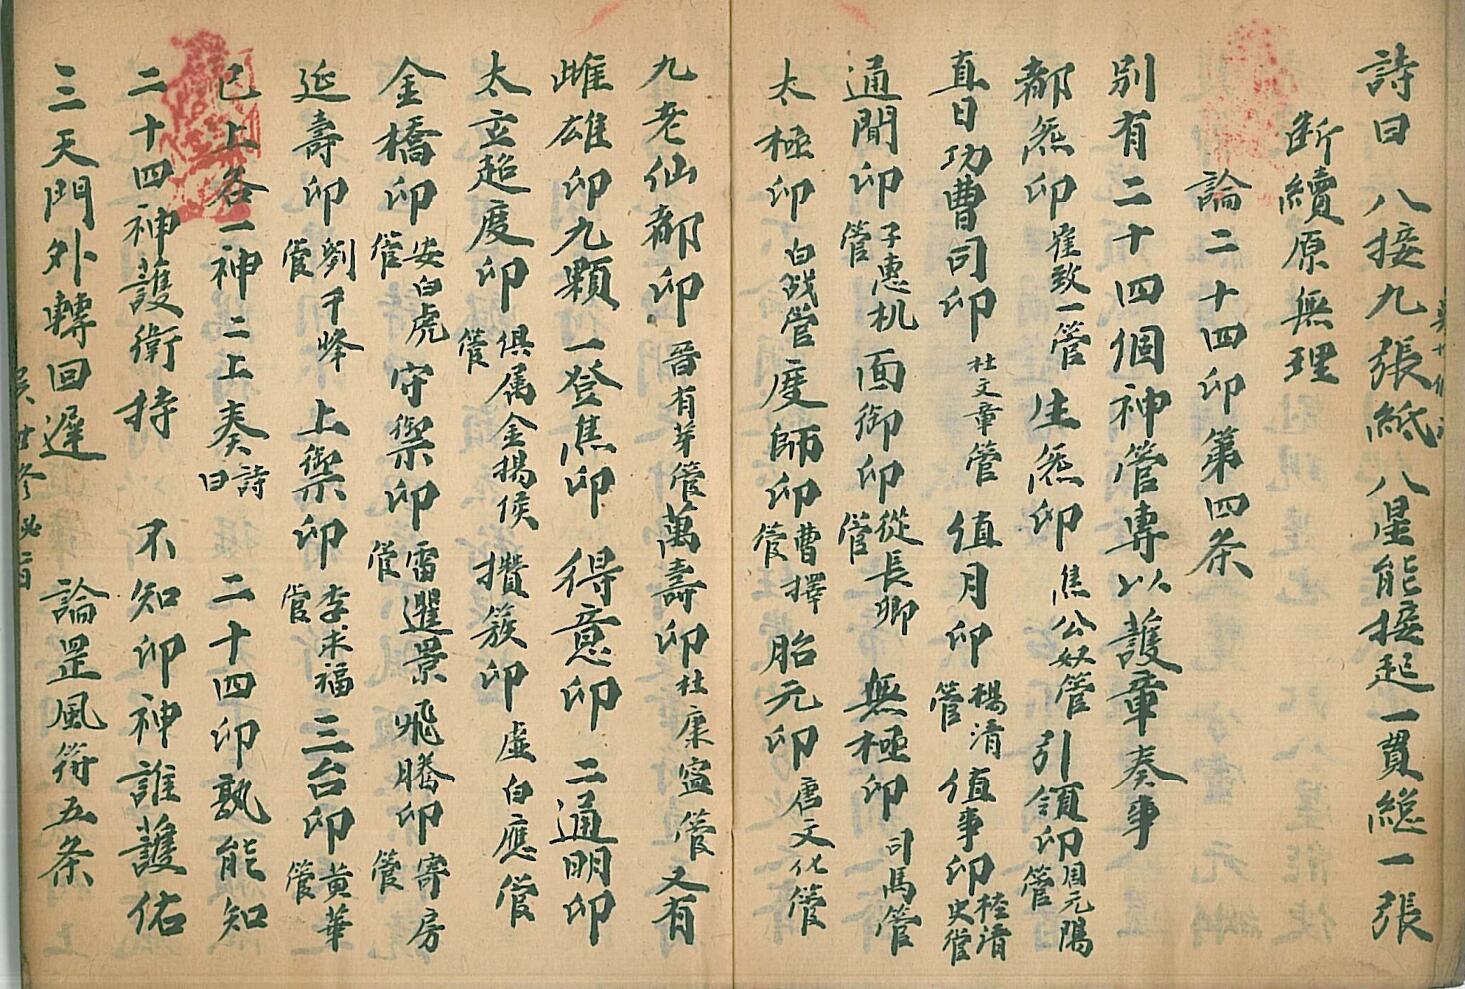 詩曰 八接九張紙 八星能接起 一貫総一張
断續原無理
論二十四印第四条
别有二十四個神管專以護章奏事
都㷌印 崔致一管 生㷌印 焦公奴管 引領印 周元陽管
直日功曹司印 杜文章管 值月印 楊清管 值事印 清史管
通聞印 子惠机管 面御印 從長卿管 無極印 司馬管
太極印 白戗管 度師印 曹擇管 胎元印 唐文化管
九老仙都印 晉有芽管 萬壽印 杜康寍管 又有
雌雄印九顆 一登焦印 得意印 二通明印
太玄超度印 俱属金揚侯管 攢簇印 虚白應管
金橋印 安白虎管 守禦印 雷暹景管 飛騰印 寄房管
延壽印 劉千峰管 上禦印 李求福管 三台印 黄華管
已上各一神二上奏 詩曰 二十四印孰能知
二十四神護衛持 不知印神誰護佑
三天門外轉回遲 論罡風符五条